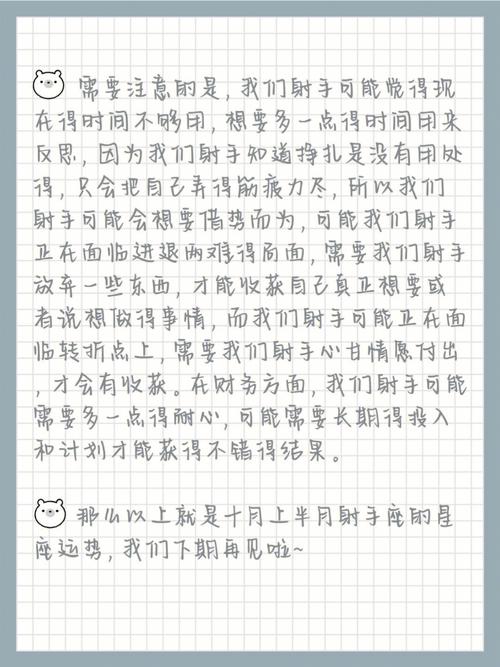 需要注意的是，我们射手可能觉得现
在得时间不够用，想要多一点得时间用来
反思，因为我们射手知道挣扎是没有用处
得，只会把自己弄得筋疲力尽，所以我们
射手可能会想要借势而为，可能我们射手
正在面临进退两难得局面，需要我们射手
放弃一些东西，才能收获自己真正想要或
者说想做得事情，而我们射手可能正在面
临转折点上，需要我们射手心甘情愿付出
，才会有收获。在财务方面，我们射手可能
需要多一点得耐心，可能需要长期得投入
和计划才能获得不错得结果。
那么以上就是十月上半月射手座的星
座运势，我们下期再见啦~